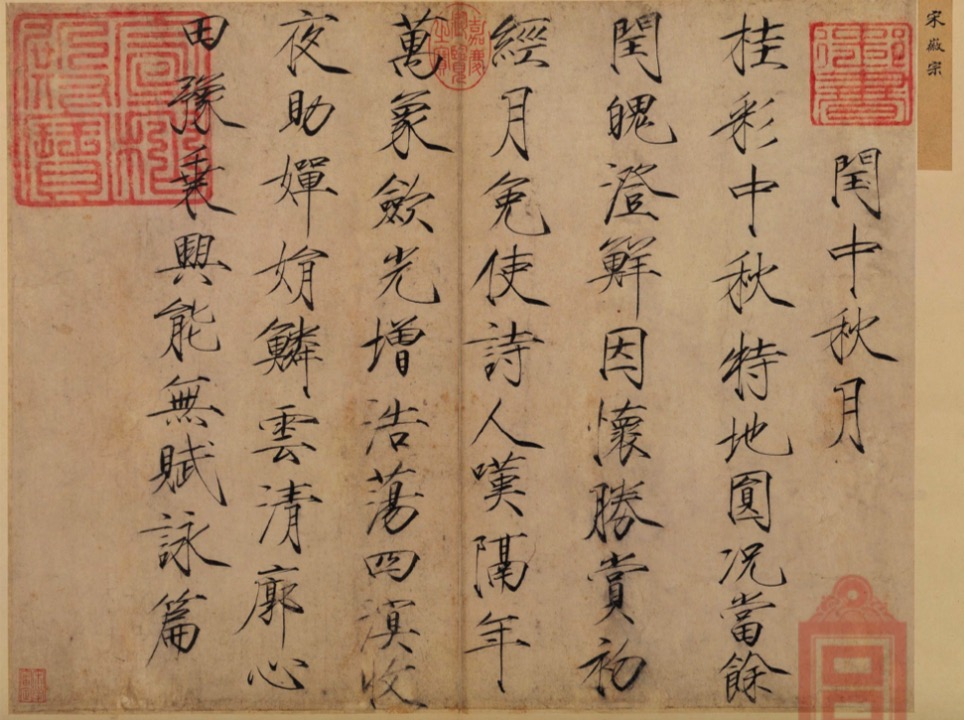 宋徽宗
御書
閏中秋月
桂彩中秋特地圓况當餘
閏魄澄鮮因懷勝賞初
經月免使詩人嘆隔年
嘉慶御覽之寶
萬象歛光增浩蕩四溟收
夜助嬋娟鱗雲清廓心
田豫乗興能無賦詠篇